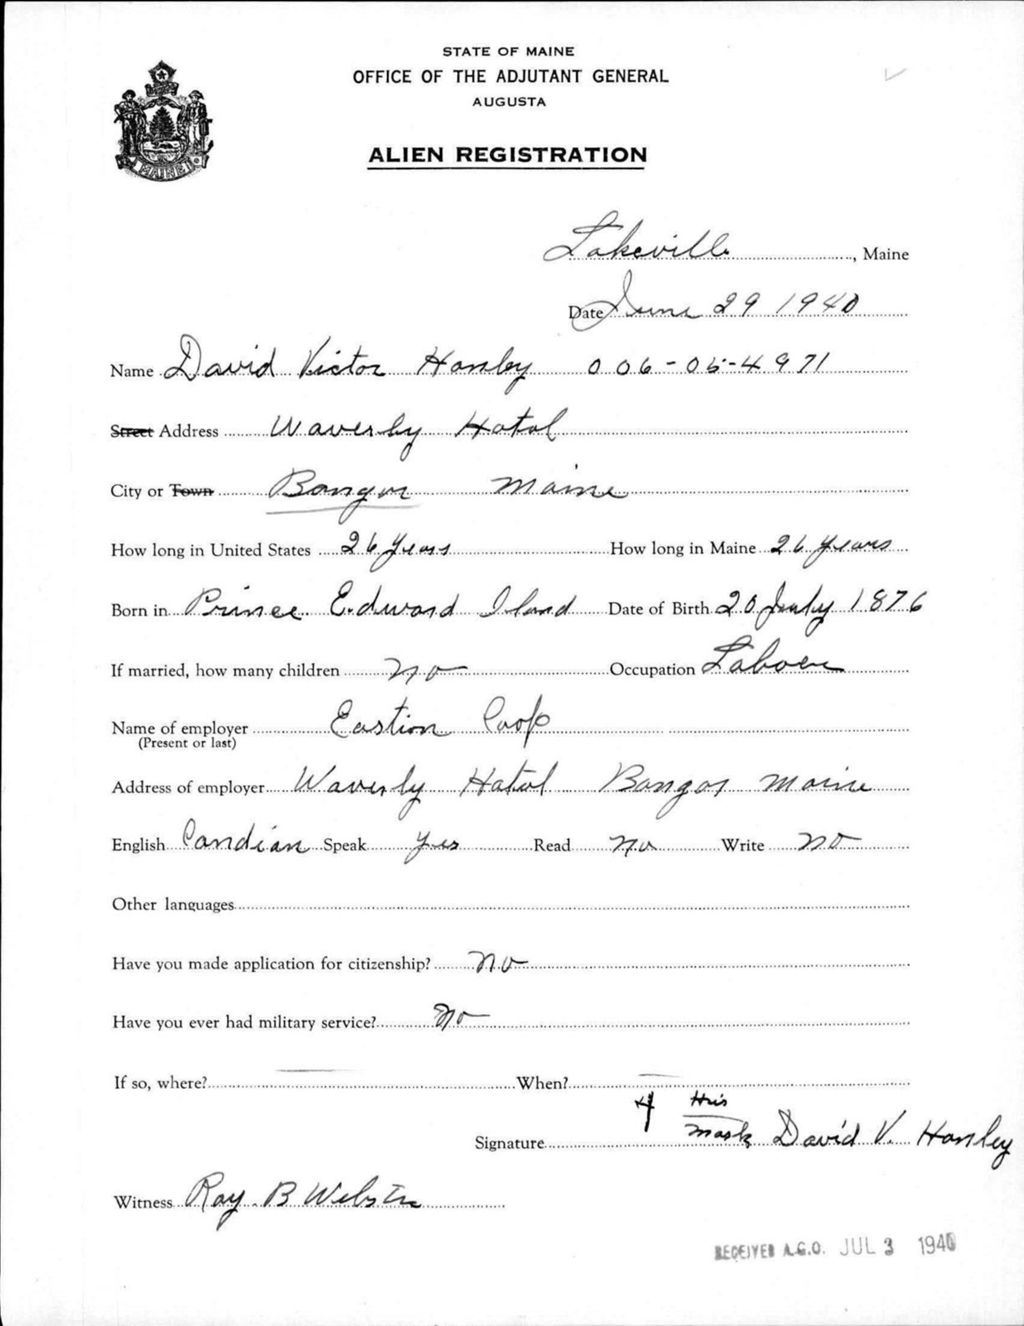 STATE OF MAINE
OFFICE OF THE ADJUTANT GENERAL
AUGUSTA
ALIEN REGISTRATION
MAINE
Lakeville, Maine
Date June 29 1940
Name David Victor Hanley 006-05-4971
Street Address Waverly Hotel
City or Town Bangor Maine
How long in United States 26 years How long in Maine 26 years
Born in Prince Edward Iland Date of Birth 20 July 1876
If married, how many children no Occupation Laborer
Name of employer Eastion Coop
(Present or last)
Address of employer Waverly Hotel Bangor Maine
English Candian Speak yes Read no Write no
Other languages
Have you made application for citizenship? no
Have you ever had military service? no
If so, where? When?
His
Signature mark David V. Hanley
Witness Ray B Webster
RECEIVED A.G.O. JUL 3 1940